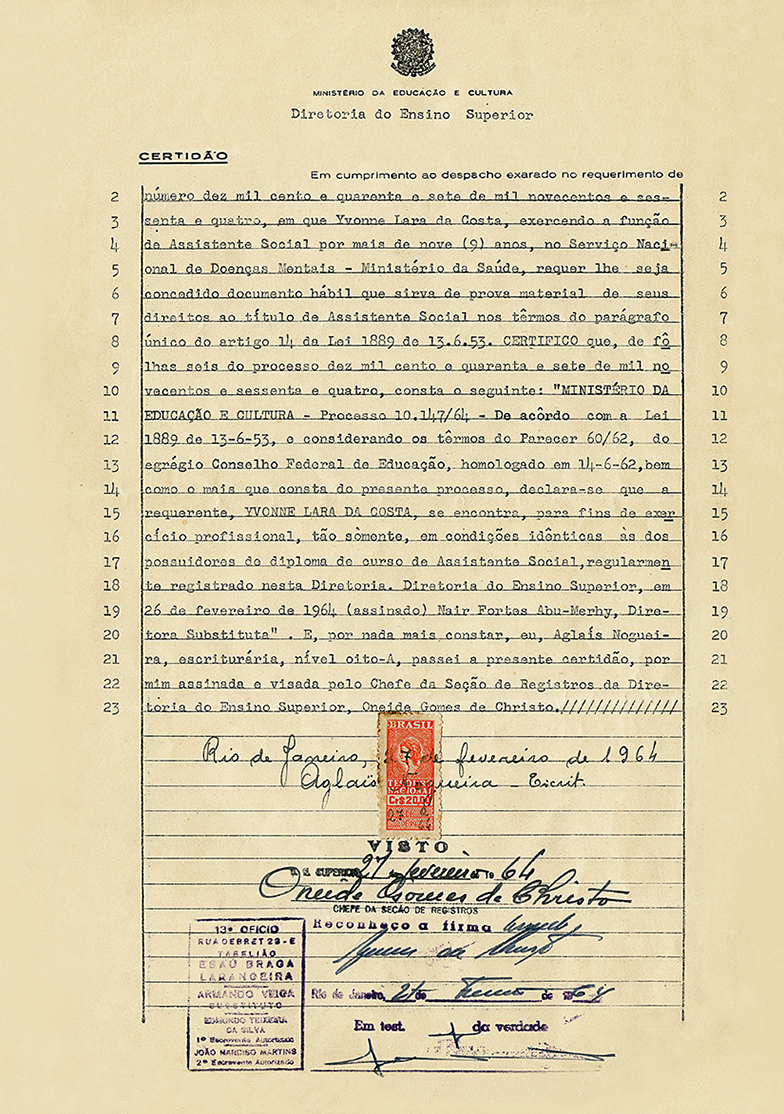 MINISTÉRIO DA EDUCAÇÃO E CULTURA
Diretoria do Ensino Superior
CERTIDÃO
Em cumprimento ao despacho exarado no requerimento de
2 número dez mil cento e quarenta e sete de mil novecentos e ses- 2
3 senta e quatro, em que Yvonne Lara da Costa, exercendo a função 3
4 de Assistente Social por mais de nove (9) anos, no Serviço Naci- 4
5 onal de Doenças Mentais - Ministério da Saúde, requer lhe seja 5
6 concedido documento hábil que sirva de prova material de seus 6
7 direitos ao título de Assistente Social nos têrmos do parágrafo 7
8 único do artigo 14 da Lei 1889 de 13.6.53. CERTIFICO que, de fô 8
9 lhas seis do processo dez mil cento e quarenta e sete de mil no 9
10 vecentos e sessenta e quatro, consta o seguinte: "MINISTÉRIO DA 10
11 EDUCAÇÃO E CULTURA - Processo 10.147/64 - De acôrdo com a Lei 11
12 1889 de 13-6-53, e considerando os têrmos do Parecer 60/62, do 12
13 egrégio Conselho Federal de Educação, homologado em 14-6-62,bem 13
14 como o mais que consta do presente processo, declara-se que a 14
15 requerente, YVONNE LARA DA COSTA, se encontra, para fins de exer 15
16 cício profissional, tão sòmente, em condições idênticas às dos 16
17 possuidores de diploma de curso de Assistente Social,regularmen 17
18 te registrado nesta Diretoria. Diretoria do Ensino Superior, em 18
19 26 de fevereiro de 1964 (assinado) Nair Fortes Abu-Merhy, Dire- 19
20 tora Substituta" . E, por nada mais constar, eu, Aglaís Noguei- 20
21 ra, escriturária, nível oito-A, passei a presente certidão, por 21
22 mim assinada e visada pelo Chefe da Seção de Registros da Dire- 22
23 toria do Ensino Superior, Oneide Gomes de Christo.////////////// 23
BRASIL
Rio de Janeiro, 27 de fevereiro de 1964
Aglaïs Nogueira - Escrit.
TESOURO
NACIONAL
Cr$ 20,00
27
VISTO
SUPERIOR 27 fevereiro 64
Oneide Gomes de Christo
CHEFE DA SEÇÃO DE REGISTROS
13º OFICIO
RUA DEBRET 23-E
TABELIÃO
ESAÚ BRAGA
LARANGEIRA
ARMANDO VEIGA
SUBSTITUTO
EDMUNDO TEIXEIRA
DA SILVA
1º Escrevente Autorizado
JOÃO NARCISO MARTINS
2º Escrevente Autorizado
Reconheço a firma
Rio de Janeiro, 27 de de 1964
Em test. da verdade